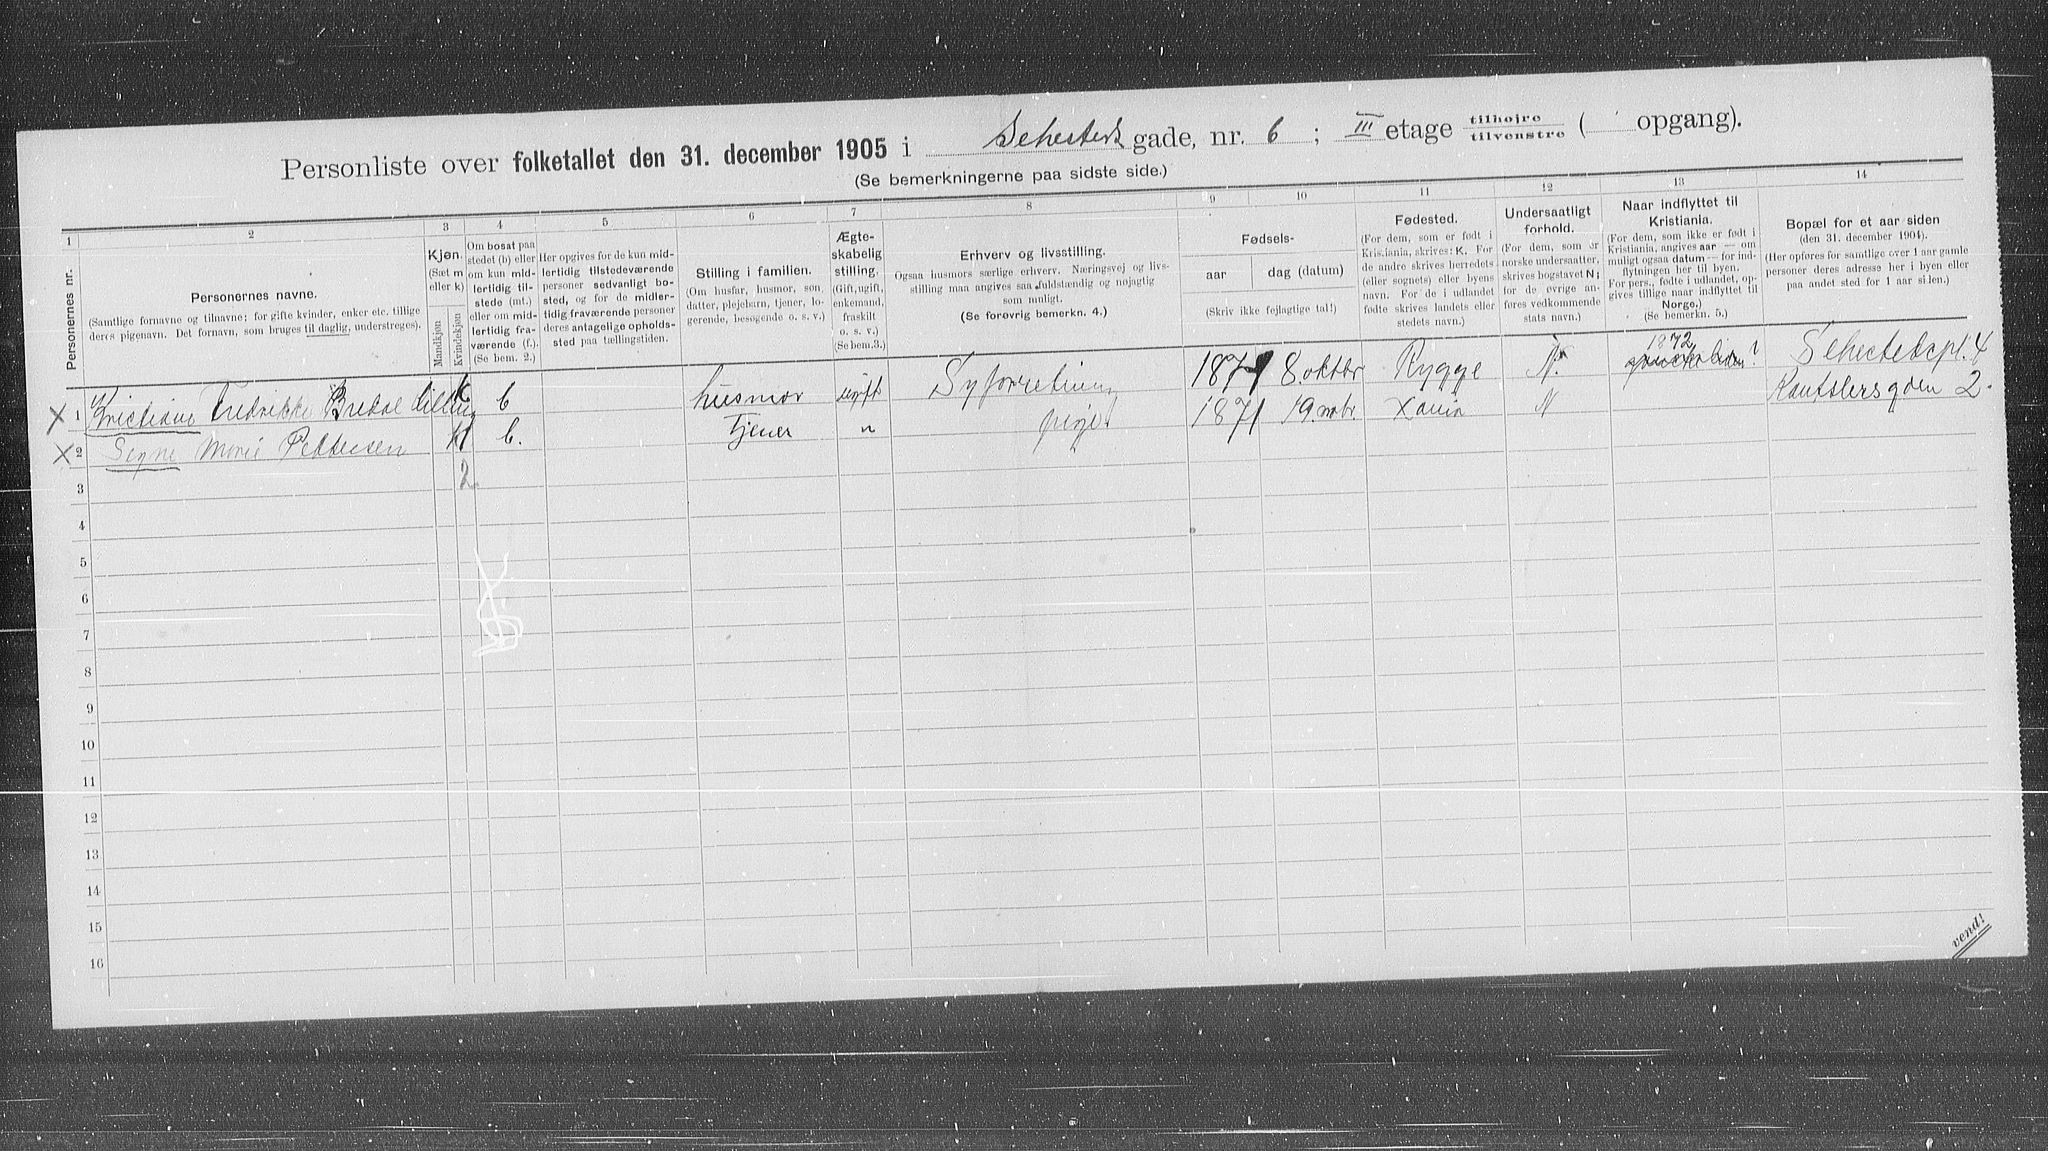 Personliste over folketallet den 31. december 1905 i Sehesteds gade, nr. 6 ; III etage tilhøjre / tilvenstre ( opgang).
(Se bemerkningerne paa sidste side.)
1 2 3 4 5 6 7 8 9 10 11 12 13 14
Personernes nr.
Personernes navne.
(Samtlige fornavne og tilnavne; for gifte kvinder, enker etc. tillige
deres pigenavn. Det fornavn, som bruges til daglig, understreges).
Kjøn.
(Sæt m
eller k)
Mandkjøn
Kvindekjøn
Om bosat paa
stedet (b) eller
om kun mid-
lertidig til-
stede (mt.)
eller om mid-
lertidig fra-
værende (f.).
(Se bem. 2.)
Her opgives for de kun mid-
lertidig tilstedeværende
personer sedvanligt bo-
sted, og for de midler-
tidig fraværende personer
deres antagelige opholds-
sted paa tællingstiden.
Stilling i familien.
(Om husfar, husmor, søn,
datter, plejebarn, tjener, lo-
gerende, besøgende o. s. v.)
Ægte-
skabelig
stilling.
(Gift, ugift,
enkemand,
fraskilt
o. s. v.)
(Se bem. 3.)
Erhverv og livsstilling.
Ogsaa husmors særlige erhverv. Næringsvej og livs-
stilling maa angives saa fuldstændig og nøjagtig
som muligt.
(Se forøvrig bemerkn. 4.)
Fødsels-
aar dag (datum)
(Skriv ikke fejlagtige tal!)
Fødested.
(For dem, som er født i
Kristiania, skrives: K. For
de andre skrives herredets
(eller sognets) eller byens
navn. For de i udlandet
fødte skrives landets eller
stedets navn.)
Undersaatligt
forhold.
(For dem, som er
norske undersaatter,
skrives bogstavet N;
for de øvrige an-
føres vedkommende
stats navn.)
Naar indflyttet til
Kristiania.
(For dem, som ikke er født i
Kristiania, angives aar — om
muligt ogsaa datum — for ind-
flytningen her til byen.
For pers., fødte i udlandet, op-
gives tillige naar indflyttet til
Norge.)
(Se bemerkn. 5.)
Bopæl for et aar siden
(den 31. december 1904).
(Her opføres for samtlige over 1 aar gamle
personer deres adresse her i byen eller
paa andet sted for 1 aar siden.)
X 1 Kristiane Fredrikke Bredal k b husmor ugift Syforretning 1871 8. oktbr Rygge N. 1872 ? Sehestedspl. 4
X 2 Signe Marie Pettersen b. Tjener " pige. 1871 19. nvbr. Xania N Rantslersgaden 2.
3 2
4
5
6
7
8
9
10
11
12
13
14
15
16
vend!